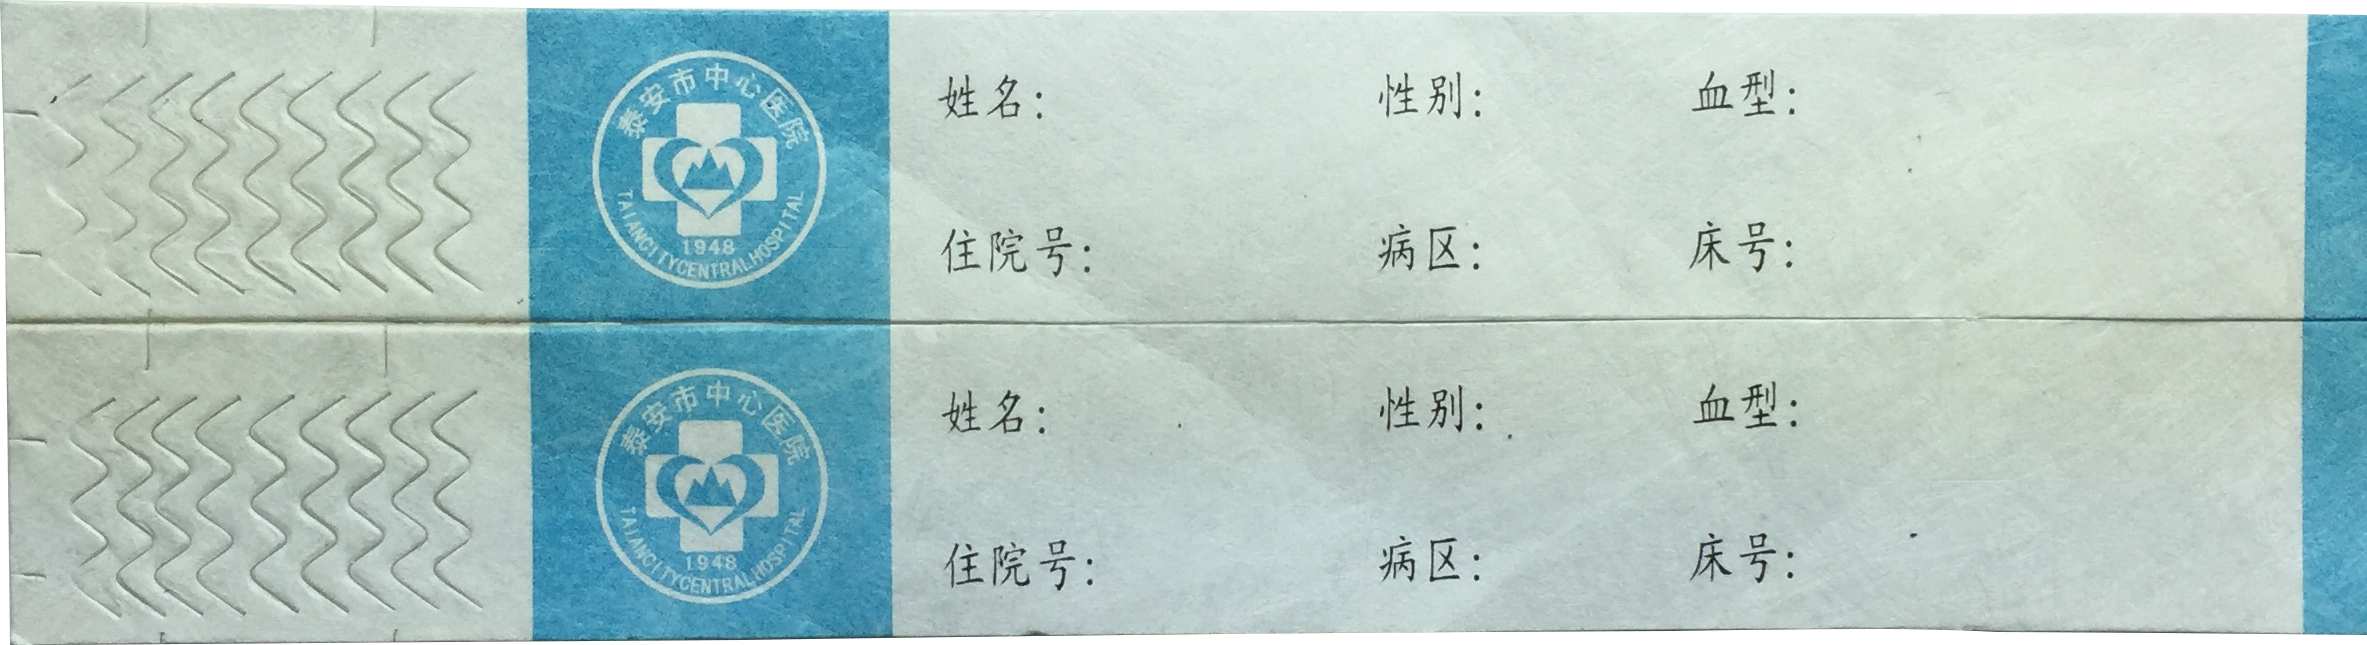 泰安市中心医院
1948
TAIANCITYCENTRALHOSPITAL
姓名: 性别: 血型:
住院号: 病区: 床号:
泰安市中心医院
1948
TAIANCITYCENTRALHOSPITAL
姓名: 性别: 血型:
住院号: 病区: 床号: